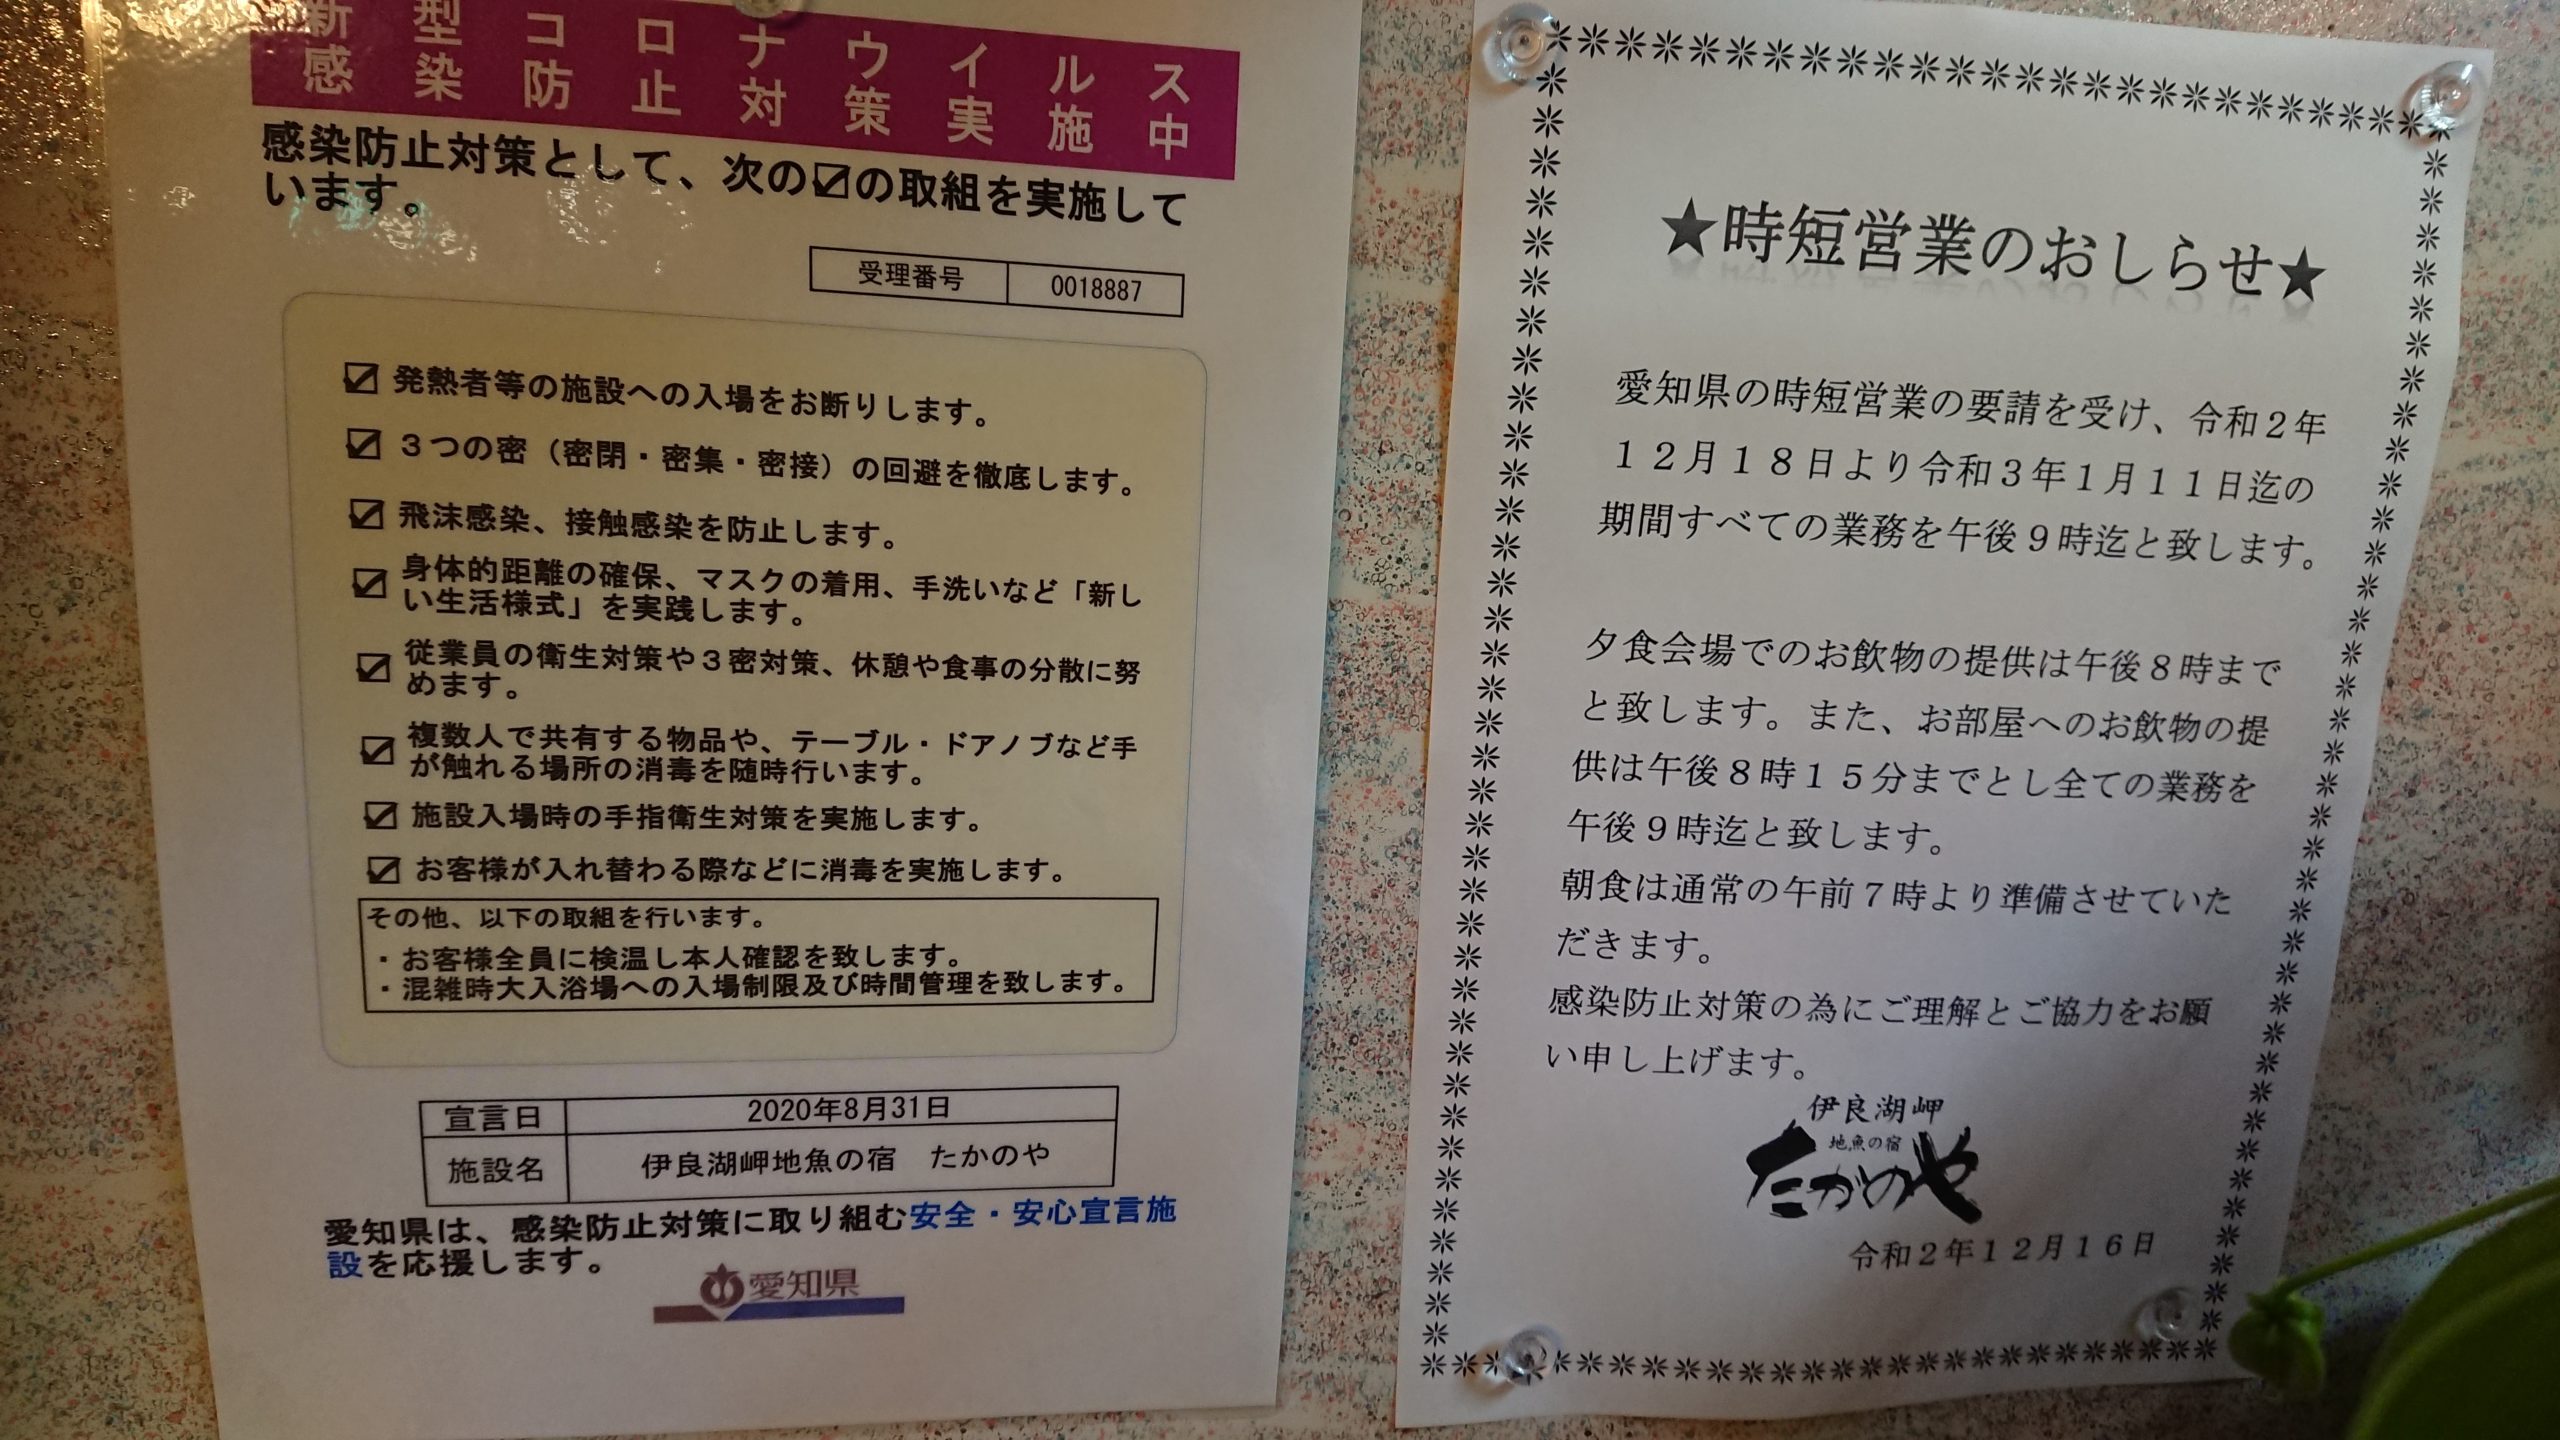 新型コロナウイルス
感染防止対策実施中
感染防止対策として、次の☑の取組を実施して
います。
受理番号 0018887
☑ 発熱者等の施設への入場をお断りします。
☑ 3つの密（密閉・密集・密接）の回避を徹底します。
☑ 飛沫感染、接触感染を防止します。
☑ 身体的距離の確保、マスクの着用、手洗いなど「新し
い生活様式」を実践します。
☑ 従業員の衛生対策や3密対策、休憩や食事の分散に努
めます。
☑ 複数人で共有する物品や、テーブル・ドアノブなど手
が触れる場所の消毒を随時行います。
☑ 施設入場時の手指衛生対策を実施します。
☑ お客様が入れ替わる際などに消毒を実施します。
その他、以下の取組を行います。
・お客様全員に検温し本人確認を致します。
・混雑時大入浴場への入場制限及び時間管理を致します。
宣言日 2020年8月31日
施設名 伊良湖岬地魚の宿 たかのや
愛知県は、感染防止対策に取り組む安全・安心宣言施
設を応援します。
愛知県
★時短営業のおしらせ★
愛知県の時短営業の要請を受け、令和２年
１２月１８日より令和３年１月１１日迄の
期間すべての業務を午後９時迄と致します。
夕食会場でのお飲物の提供は午後８時まで
と致します。また、お部屋へのお飲物の提
供は午後８時１５分までとし全ての業務を
午後９時迄と致します。
朝食は通常の午前７時より準備させていた
だきます。
感染防止対策の為にご理解とご協力をお願
い申し上げます。
伊良湖岬
地魚の宿
たかのや
令和２年１２月１６日